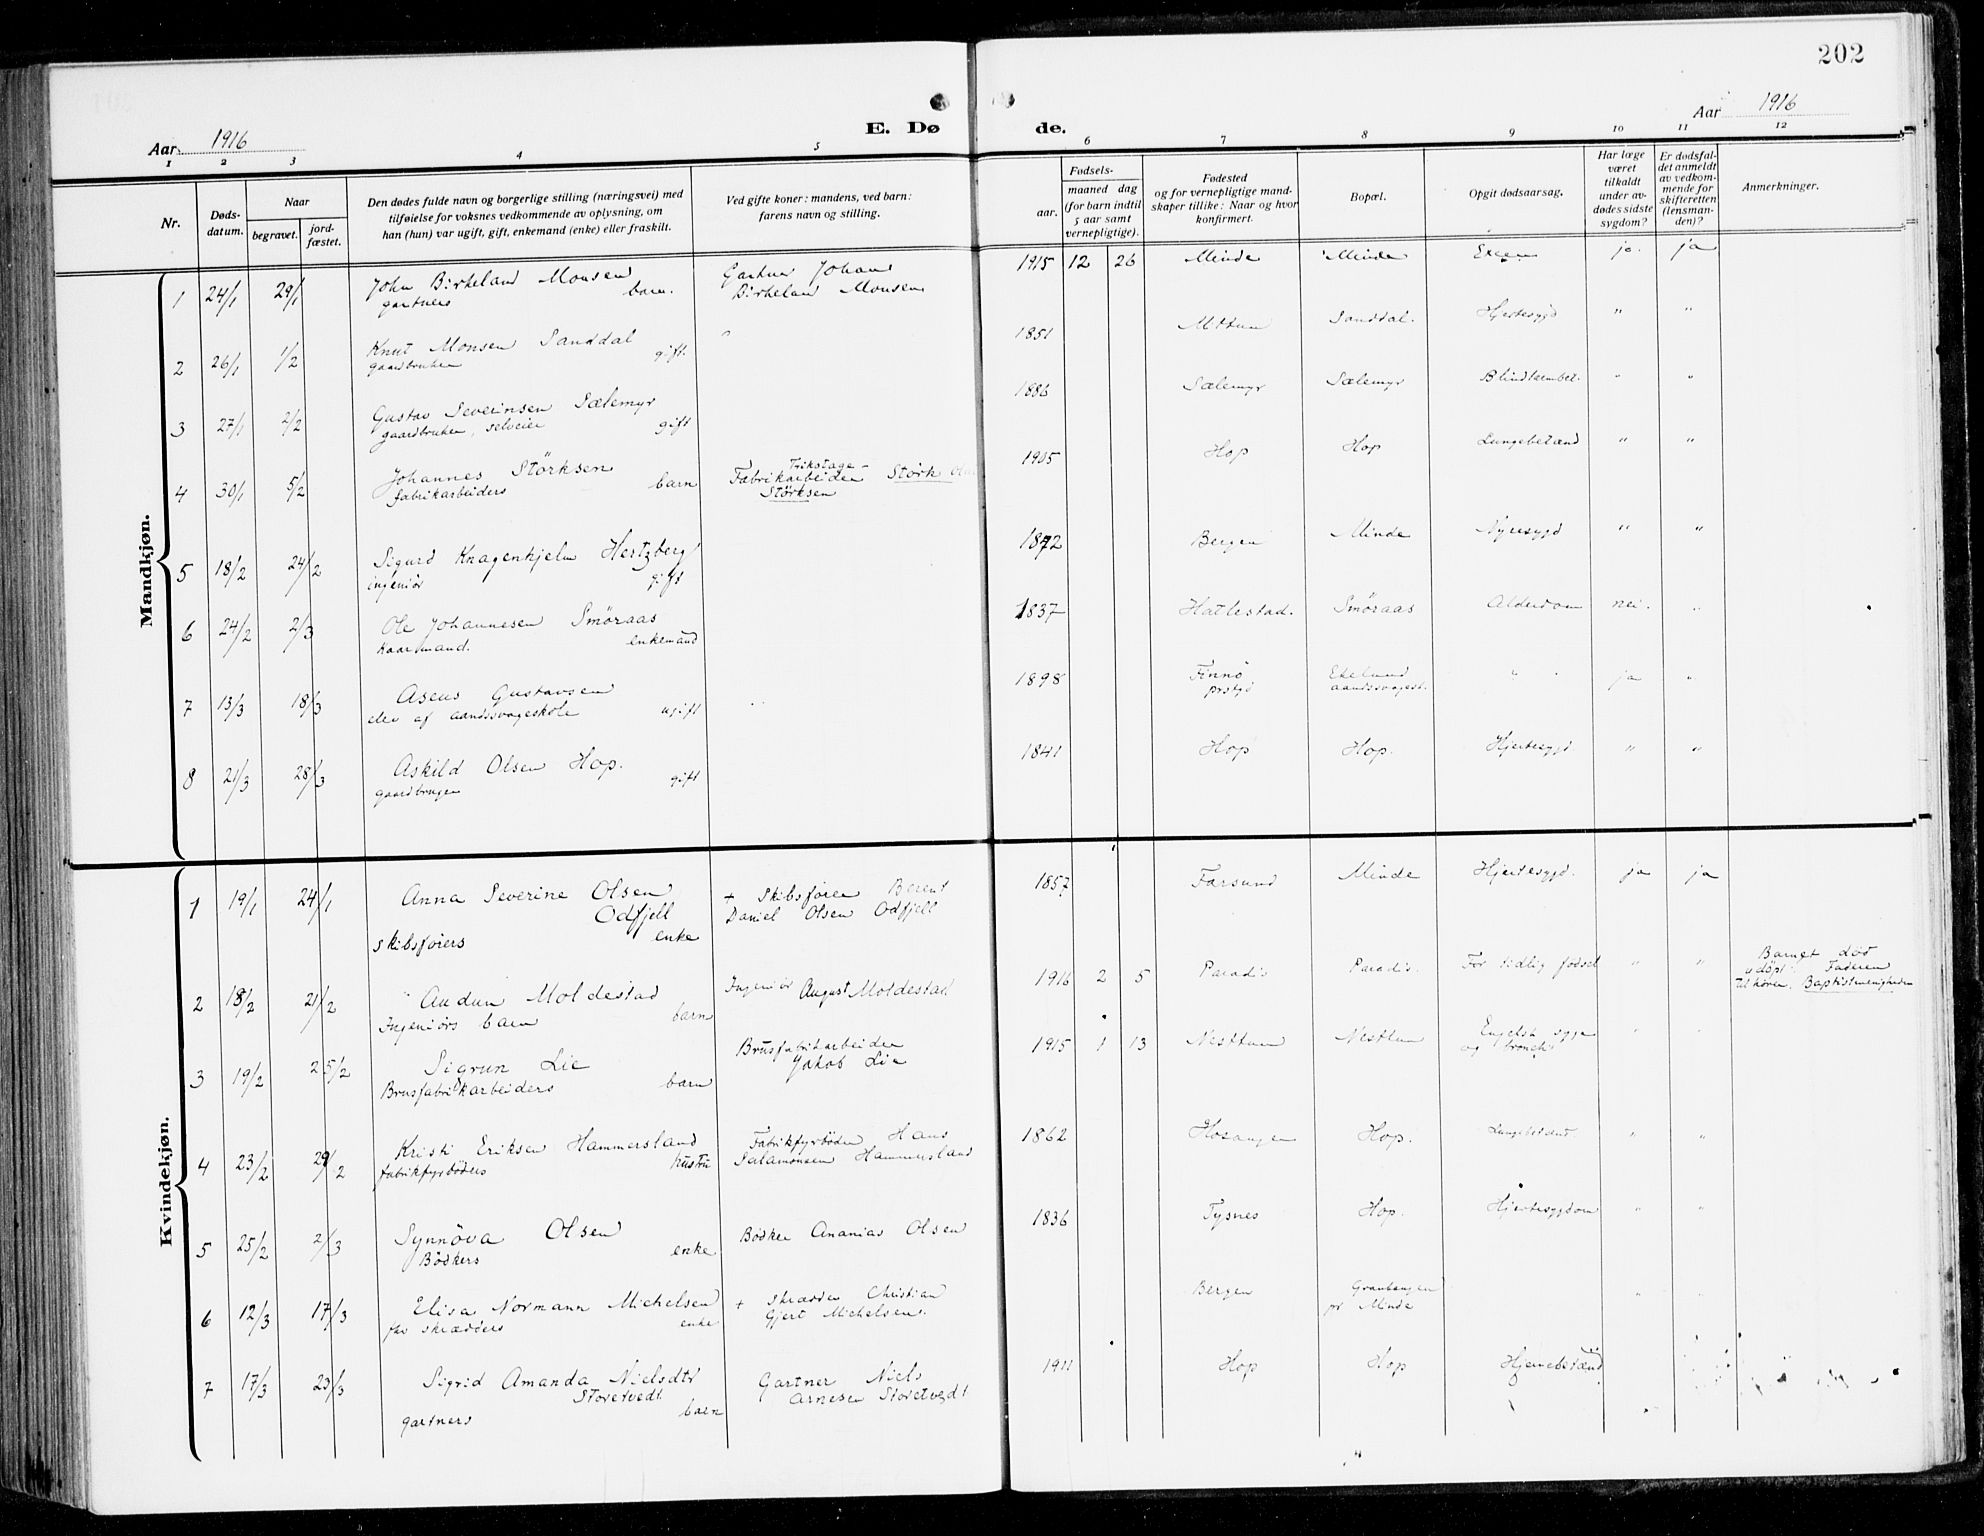 202
Aar 1916
E. Døde.
Aar 1916
1 2 3 4 5 6 7 8 9 10 11 12
Nr.
Døds-
datum.
Naar
begravet.
jord-
fæstet.
Den dødes fulde navn og borgerlige stilling (næringsvei) med
tilføielse for voksnes vedkommende av oplysning, om
han (hun) var ugift, gift, enkemand (enke) eller fraskilt.
Ved gifte koner: mandens, ved barn:
farens navn og stilling.
Fødsels-
aar.
maaned dag
(for barn indtil
5 aar samt
vernepligtige).
Fødested
og for vernepligtige mand-
skaper tillike: Naar og hvor
konfirmert.
Bopæl.
Opgit dødsaarsag.
Har læge
været
tilkaldt
under av-
dødes sidste
sygdom?
Er dødsfal-
det anmeldt
av vedkom-
mende for
skifteretten
(lensman-
den)?
Anmerkninger.
Mandkjøn.
1 24/1 29/1 John Birkeland Monsen Gartner Johan 1915 12 26 Minde Minde ja ja
gartners barn. Birkeland Monsen
2 26/1 1/2 Knut Monsen Sanddal " 1851 Sanddal. Hjertesygd " "
gaardbruker gift.
3 27/1 2/2 Gustav Severinsen Sælemyr 1886 Sælemyr Sælemyr Blindtarmbet. " "
gaardbruker, selveier gift
4 30/1 5/2 Johannes Störksen Trikotage- 1905 Hop Hop Lungebetænd " "
fabrikarbeiders barn Fabrikarbeider Störk
Störksen
5 18/2 24/2 Sigurd Knagenhjelm Hertzberg 1872 Bergen Minde Nyresygd " "
ingeniör gift
6 24/2 2/3 Ole Johannesen Smöraas 1837 Hatlestad. Smöraas Alderdom nei. "
Kaarmand. enkemand
7 13/3 18/3 Asens Gustavsen 1898 Finnö Ekelund " ja "
elev af aandssvageskole ugift prstgd aandssvagest.
8 21/3 28/3 Askild Olsen Hop. 1841 Hop Hop. Hjertesygd " "
gaardbruger gift
Kvindekjøn.
1 19/1 24/1 Anna Severine Olsen + Skibsförer Berent 1857 Farsund Minde Hjertesygd. ja ja
Odfjell Daniel Olsen Odfjell
skibsförers enke
2 18/2 21/2 Audun Moldestad Ingeniör August Moldestad 1916 2 5 Paradis Paradis. For tidlig födsel " " Barnet död
Ingeniörs barn barn udöpt. Faderen
tilhörer Baptistmenigheden
3 19/2 25/2 Sigrun Lie Brusfabrikarbeider 1915 1 13 Nesttun Nesttun Engelsk syge " "
Brusfabrikarbeiders barn Jakob Lie og bronch.
4 23/2 29/2 Kristi Eriksen Hammersland Fabrikfyrböder Hans 1862 Hosanger Hop. Lungebetænd. " "
fabrikfyrböders hustru Salamonsen Hammersland
5 25/2 2/3 Synnöva Olsen Bödker Ananias Olsen 1836 Tysnes Hop. Hjertesygdom " "
Bödkers enke
6 12/3 17/3 Elisa Normann Michelsen + Skrædder Christian Bergen "
fhv skrædders enke Gjert Michelsen. pr Minde
7 17/3 23/3 Sigrid Amanda Nielsdtr Gartner Niels 1911 Hop Hop Hjernebetænd
Storetvedt Arnesen Storetvedt
gartners barn